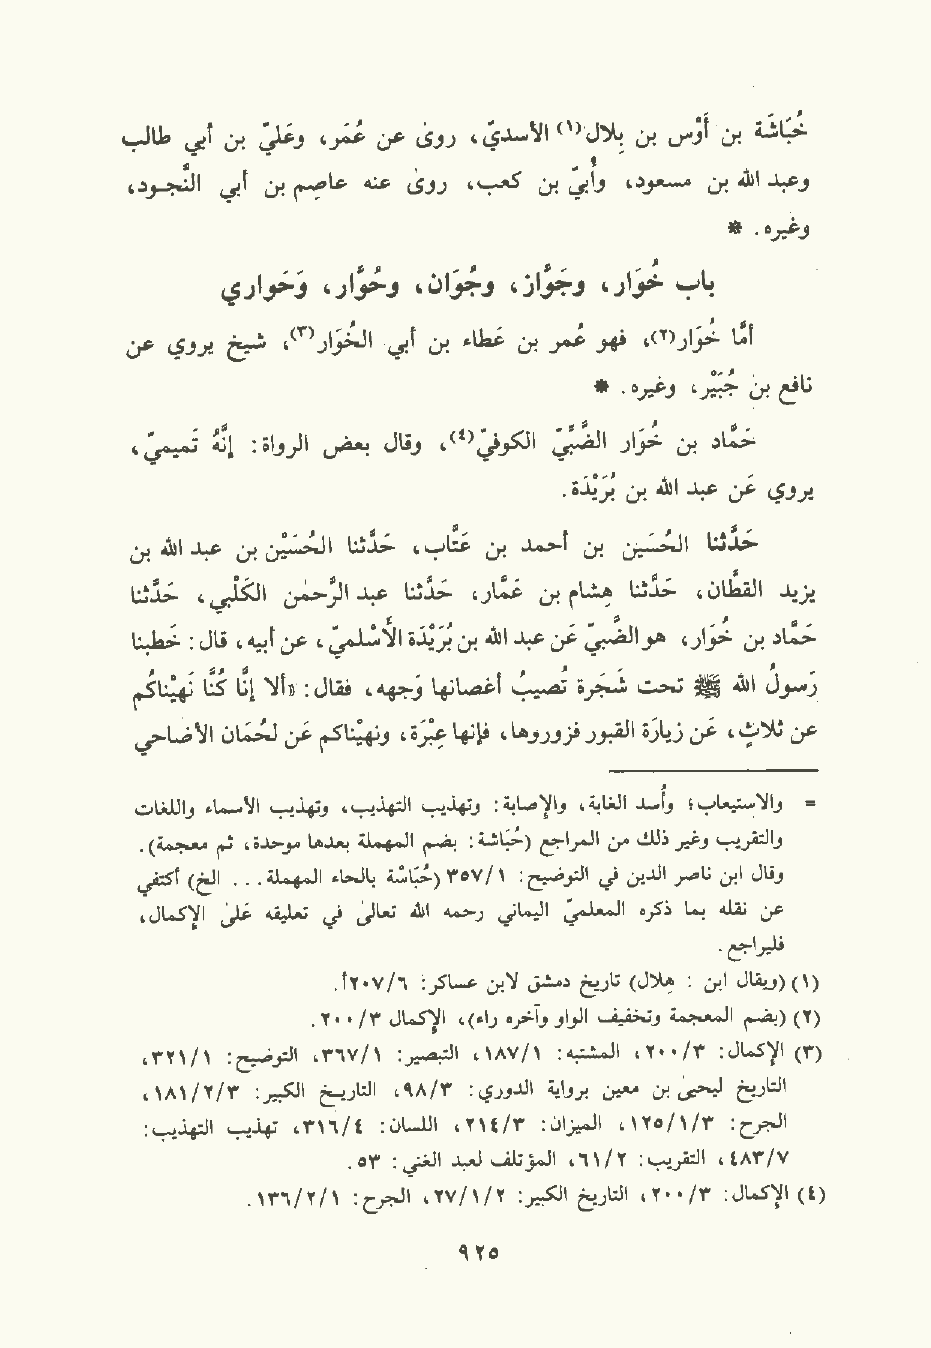 خُبَاشَة بن أَوْس بن بِلال(١) الأسديّ، روىٰ عن عُمَر، وعَليّ بن أبي طالب
وعبد الله بن مسعود، وأُبيّ بن كعب، روىٰ عنه عاصِم بن أبي النَّجود،
وغيره. *
باب خُوَار، وجَوَّاز، وجُوَان، وحُوَّار، وَحَواري
أمَّا خُوَار(٢)، فهو عُمر بن عَطاء بن أبي الخُوَار(٣)، شيخ يروي عن
نافع بن جُبَيْر، وغيره. *
حَمَّاد بن خُوَار الضَّبِّيّ الكوفيّ(٤)، وقال بعض الرواة: إنَّهُ تَميميّ،
يروي عَن عبد الله بن بُرَيْدَة.
حَدَّثنا الحُسَين بن أحمد بن عَتَّاب، حَدَّثنا الحُسَيْن بن عبد الله بن
يزيد القطَّان، حَدَّثنا هِشام بن عَمَّار، حَدَّثنا عبد الرَّحمٰن الكَلْبي، حَدَّثنا
حَمَّاد بن خُوَار، هو الضبيّ عَن عبد الله بن بُرَيْدَة الأسْلميّ، عن أبيه، قال: خَطبنا
رَسولُ الله ﷺ تحت شَجَرة تُصيبُ أغصانها وَجهه، فقال: «ألا إنَّا كُنَّا نَهَيْناكُم
عن ثلاثٍ، عَن زيارَة القبور فزوروها، فإنها عِبْرَة، ونهيْناكم عَن لُحمَان الأضاحي
= والاستيعاب؛ وأسد الغابة، والإصابة: وتهذيب التهذيب، وتهذيب الأسماء واللغات
والتقريب وغير ذلك من المراجع (خُبَاشة: بضم المهملة بعدها موحدة، ثم معجمة).
وقال ابن ناصر الدين في التوضيح: ٣٥٧/١ (خُبَاسْة بالحاء المهملة... الخ) أكتفي
عن نقله بما ذكره المعلميّ اليماني رحمه الله تعالىٰ في تعليقه عَلىٰ الإكمال،
فليراجع.
(١) (ويقال ابن : هلال) تاريخ دمشق لابن عساكر: ٢٠٧/٦أ.
(٢) (بضم المعجمة وتخفيف الواو وآخره راء)، الإكمال ٢٠٠/٣.
(٣) الإكمال: ٢٠٠/٣، المشتبه: ١٨٧/١، التبصير: ٣٦٧/١، التوضيح: ٣٢١/١،
التاريخ ليحيىٰ بن معين برواية الدوري: ٩٨/٣، التاريخ الكبير: ١٨١/٢/٣،
الجرح: ١٢٥/١/٣، الميزان: ٢١٤/٣، اللسان: ٣١٦/٤، تهذيب التهذيب:
٤٨٣/٧، التقريب: ٦١/٢، المؤتلف لعبد الغني: ٥٣.
(٤) الإكمال: ٢٠٠/٣، التاريخ الكبير: ٢٧/١/٢، الجرح: ١٣٦/٢/١.
٩٢٥